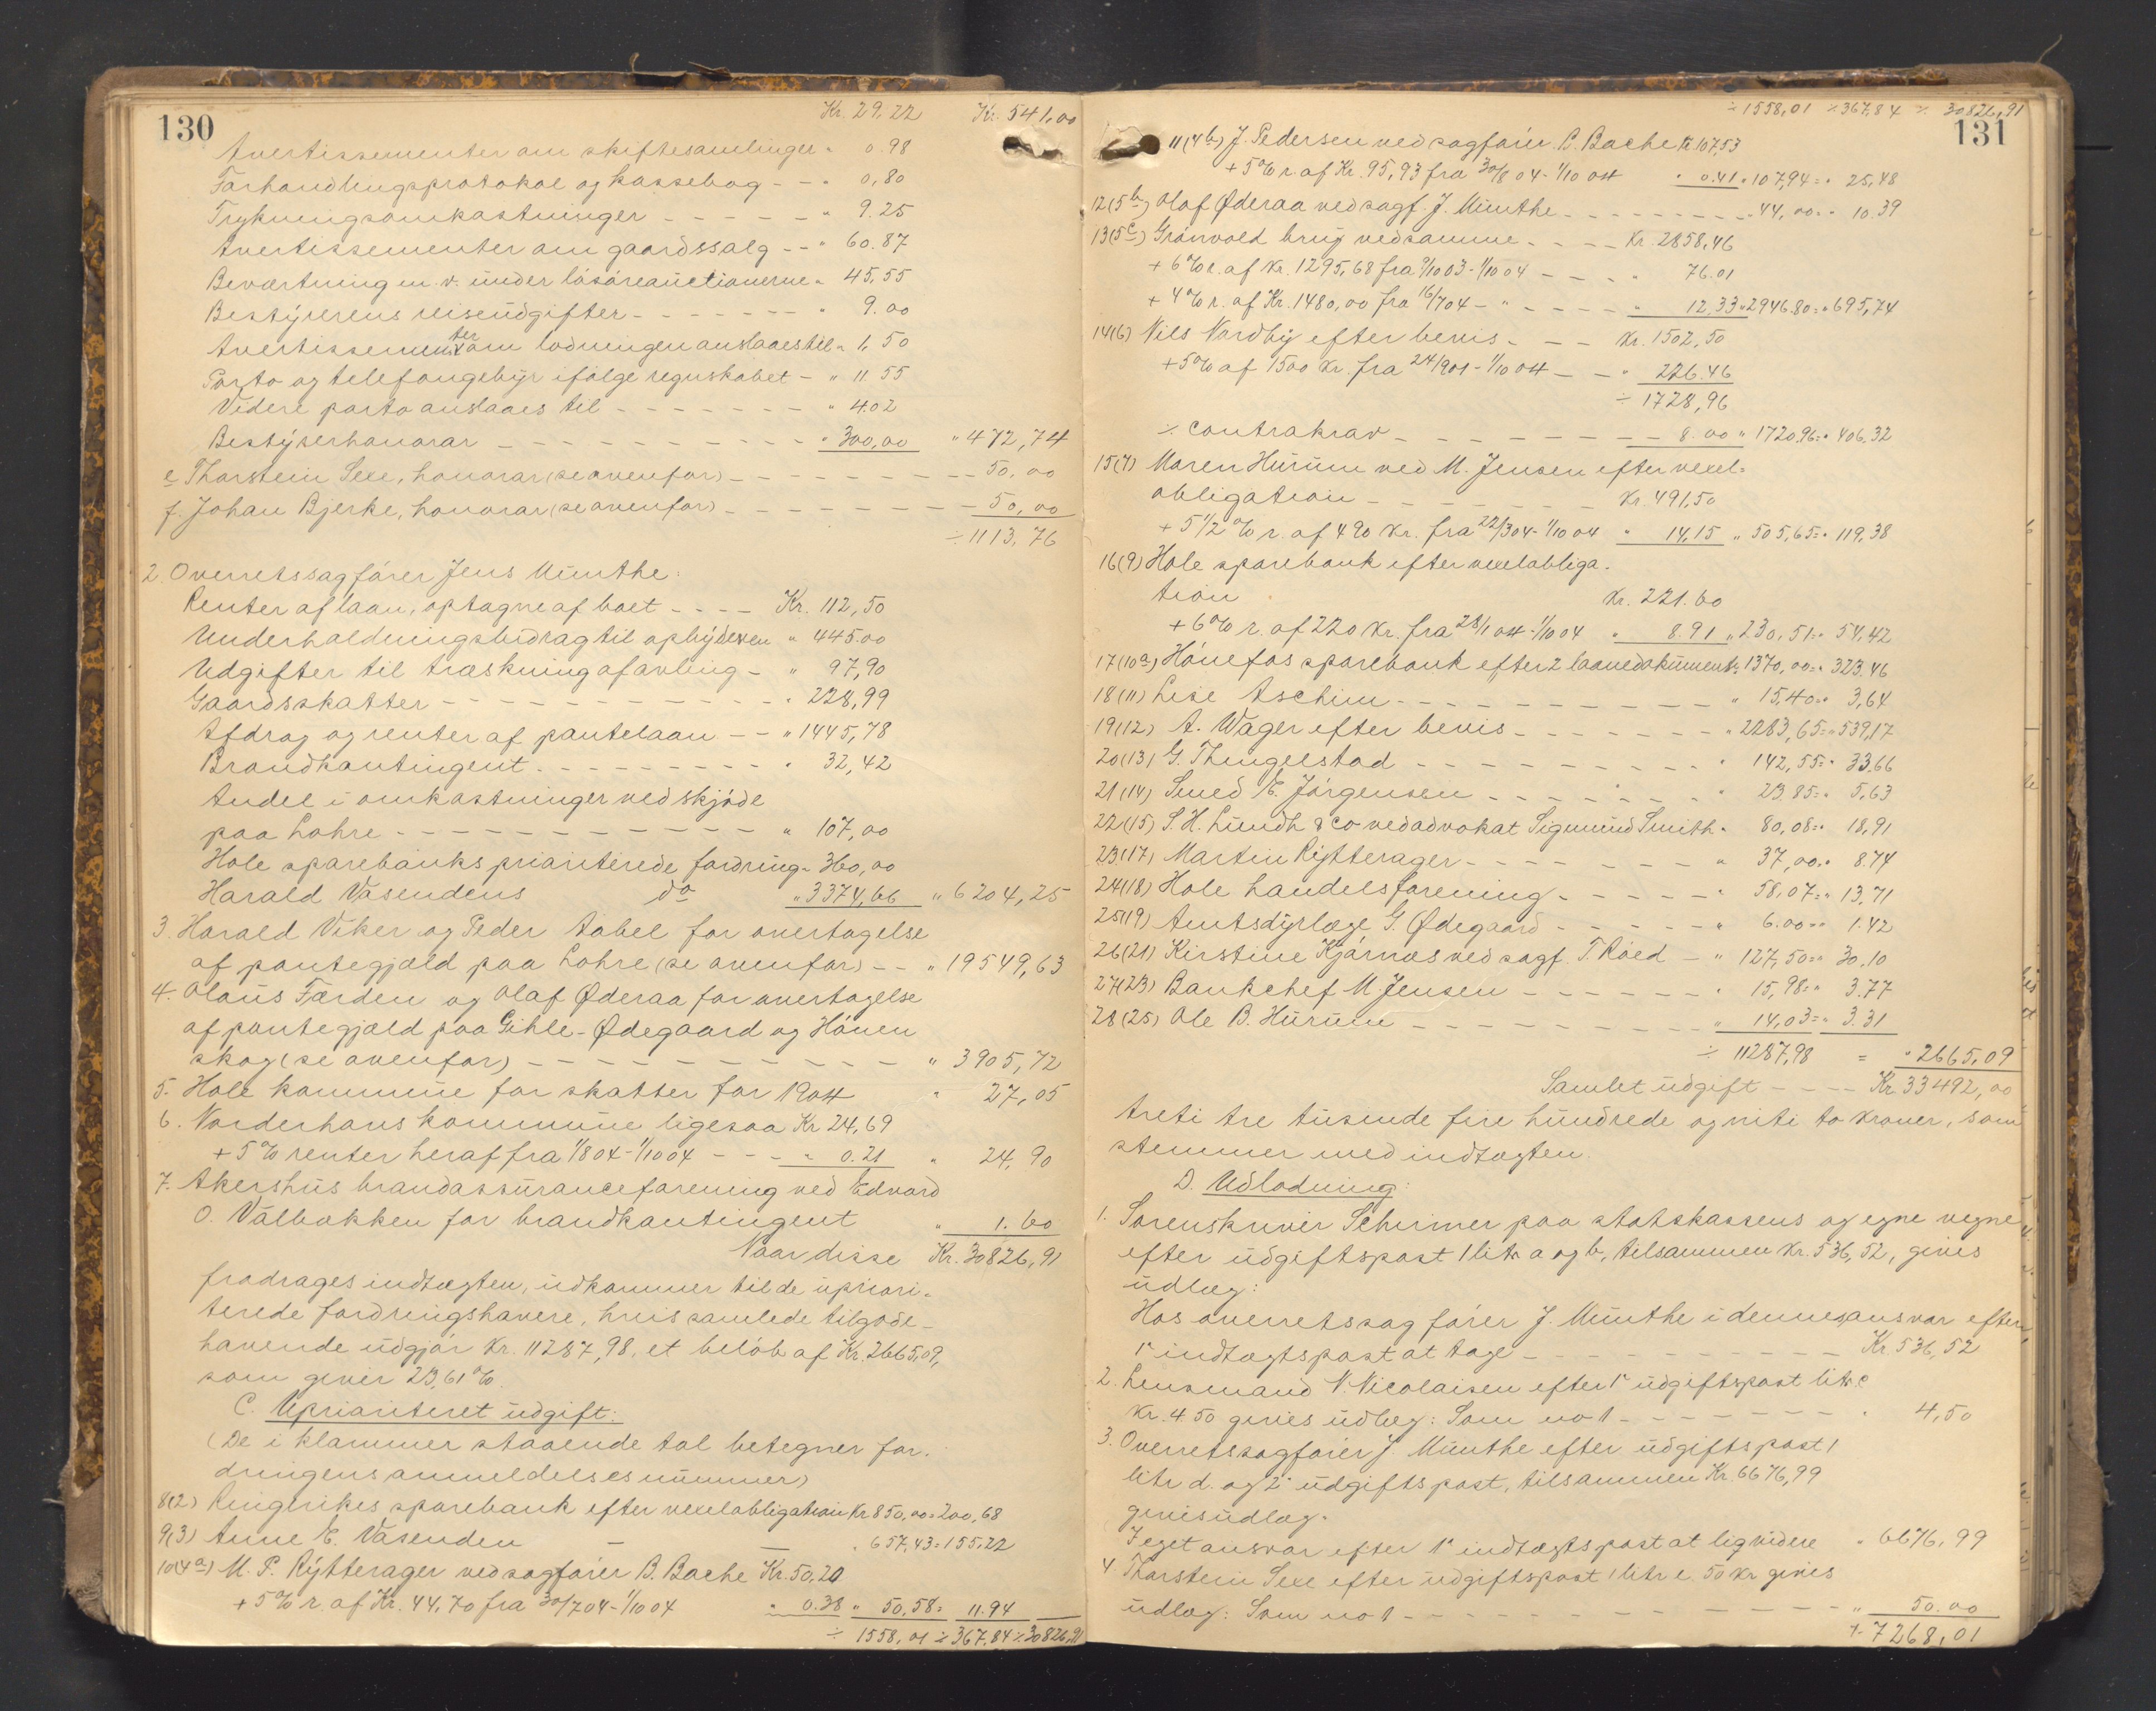 130
Kr. 29.22 Kr. 541.00
Avertissementer om skiftesamlinger " 0.98
Forhandlingsprotokol og kassebog - - " 0,80
Trykningsomkostninger - - - - - " 9.25
Avertissementer om gaardssalg - - " 60.87
Beværtning m. v. under løsøreauctionerne " 45,55
Bestyrerens reiseudgifter - - - - - - " 9.00
Avertissementer om lodningen anslaaes til " 1,50
Porto og telefongebyr ifølge regnskabet - " 11 55
Videre porto anslaaes til - - - - - - " 4.02
Bestyrerhonorar - - - - - - - - " 300,00 " 472,74
e Thorstein Sexe, honorar (se ovenfor) - - - - - - - 50,00
f. Johan Bjerke, honorar (se ovenfor) - - - - - - - 50,00
÷ 1113,76
2. Overretssagfører Jens Münthe:
Renter af laan, optagne af boet - - - - Kr. 112,50
Underholdningsbidrag til opbyderen " 445.00
Udgifter til træskning af avling - " 97,90
Gaardsskatter - - - - - - - - - " 228,99
Afdrag og renter af pantelaan - - " 1445,78
Brandkontingent - - - - - - - - " 32,42
Andel i omkostninger ved skjøde
paa Lohre - - - - - - - - - - - " 107,00
Hole sparebanks prioriterede fordring " 360,00
Harald Vasendens do " 3374,66 " 6204,25
3. Harald Viker og Peder Aabel for overtagelse
af pantegjæld paa Lohre (se ovenfor) - - " 19549,63
4. Olaus Færden og Olaf Øderaa for overtagelse
af pantegjæld paa Gihle-Ødegaard og Hønen
skog (se ovenfor) - - - - - - - - - " 3905,72
5. Hole kommune for skatter for 1904 " 27,05
6. Norderhovs kommune ligesaa Kr 24,69
+ 5% renter heraf fra 1/8 04 - 1/10 04 - - - " 0.21 " 24,90
7. Akershus brandassuranceforening ved Edvard
O. Välbakken for brandkontingent " 1.60
Naar disse Kr. 30826,91
fradrages indtægten, udkommer til de upriori-
terede fordringshavere, hvis samlede tilgode-
havende udgjør Kr. 11287,98, et beløb af Kr. 2665,09,
som giver 23,61%.
C. Uprioriteret udgift:
(De i klammer staaende tal betegner for-
dringens anmeldelsesnummer)
8(2) Ringerikes sparebank efter vexelobligation Kr 850,00 = 200,68
9(3) Anne E. Vasenden — — " 657,43 = 155.22
10(4a) M. P. Rytterager ved sagfører B. Bache Kr. 50,20
+ 5% r. af Kr. 44,70 fra 30/7 04 - 1/10 04 " 0.38 " 50,58 = 11.94
÷ 1558,01 ÷ 367,84 ÷ 30826,91
÷ 1558,01 ÷ 367,84 ÷ 30826,91
131
11(4b) J. Pedersen ved sagfører B. Bache Kr 107,53
+ 5% r. af Kr. 95,93 fra 30/8 04 - 1/10 04 " 0.41 " 107,94 = " 25,48
12(5b) Olaf Øderaa ved sagf. J. Münthe - - - - - - - - " 44,00 = " 10.39
13(5c) Grønvold brug ved samme - - - - Kr. 2858,46
+ 6% r. af Kr. 1295,68 fra 9/10 03 - 1/10 04 - - - " 76.01
+ 4% r. af Kr. 1480,00 fra 16/7 04 - " - - - - " 12,33 " 2946.80 = " 695,74
14(6) Nils Nordby efter bevis - - - Kr. 1502,50
+ 5% af 1500 Kr. fra 24/9 01 - 1/10 04 - - " 226.46
÷ 1728,96
÷ contrakrav - - - - - - - - 8.00 " 1720,96 = " 406,32
15(7) Maren Hurum ved M. Jensen efter vexel-
obligation - - - - - - - Kr. 491,50
+ 5 1/2 % r. af 490 Kr. fra 22/3 04 - 1/10 04 " 14,15 " 505,65 = " 119,38
16(9) Hole sparebank efter vexelobliga-
tion Kr. 221.60
+ 6% r. af 220 Kr. fra 28/1 04 - 1/10 04 " 8.91 " 230,51 = " 54,42
17(10a) Hønefos sparebank efter 2 laanedokumenter " 1370,00 = " 323.46
18(11) Lise Aschim - - - - - - - - - - - " 15,40 = " 3,64
19(12) A. Wager efter bevis - - - - - - - " 2283,65 = " 539,17
20(13) G. Thingelstad - - - - - - - - - - " 142,55 = " 33.66
21(14) Smed E. Jörgensen - - - - - - - " 23,85 = " 5,63
22(15) S. H. Lundh & Co ved advokat Sigmund Smith " 80,08 = " 18,91
23(17) Martin Rytterager - - - - - - - " 37,00 = " 8.74
24(18) Hole handelsforening - - - - - " 58,07 = " 13,71
25(19) Amtsdyrlæge G. Ødegaard - - - - - " 6.00 = " 1.42
26(21) Kirstine Kjærnæs ved sagf. T. Röed - " 127,50 = " 30,10
27(23) Bankchef M. Jensen - - - - - - - " 15,98 = " 3.77
28(25) Ole B. Hurum - - - - - - - - - - " 14,03 = " 3.31
÷ 11287,98 = " 2665,09
Samlet udgift - - - - Kr. 33492,00
treti tre tusende fire hundrede og niti to kroner, som
stemmer med indtægten.
D. Udlodning:
1. Sorenskriver Schirmer paa statskassens og egne vegne
efter udgiftspost 1 litr a og b, tilsammen Kr. 536,52, gives
udlæg:
Hos overretssagfører J. Münthe i dennes ansvar efter
1ste indtægtspost at tage - - - - - - - - - - Kr. 536,52
2. Lensmand N. Nicolaisen efter 1ste udgiftspost litr. c
Kr. 4.50 gives udlæg: Som no 1 - - - - - - - " 4,50
3. Overretssagfører J. Münthe efter udgiftspost 1
litr d. og 2den udgiftspost, tilsammen Kr. 6676,99
gives udlæg:
I eget ansvar efter 1ste indtægtspost at liqvidere " 6676,99
4. Thorstein Sexe efter udgiftspost 1 litr e. 50 Kr gives
udlæg: Som no 1 - - - - - - - - - - - - " 50.00
÷ 7268,01